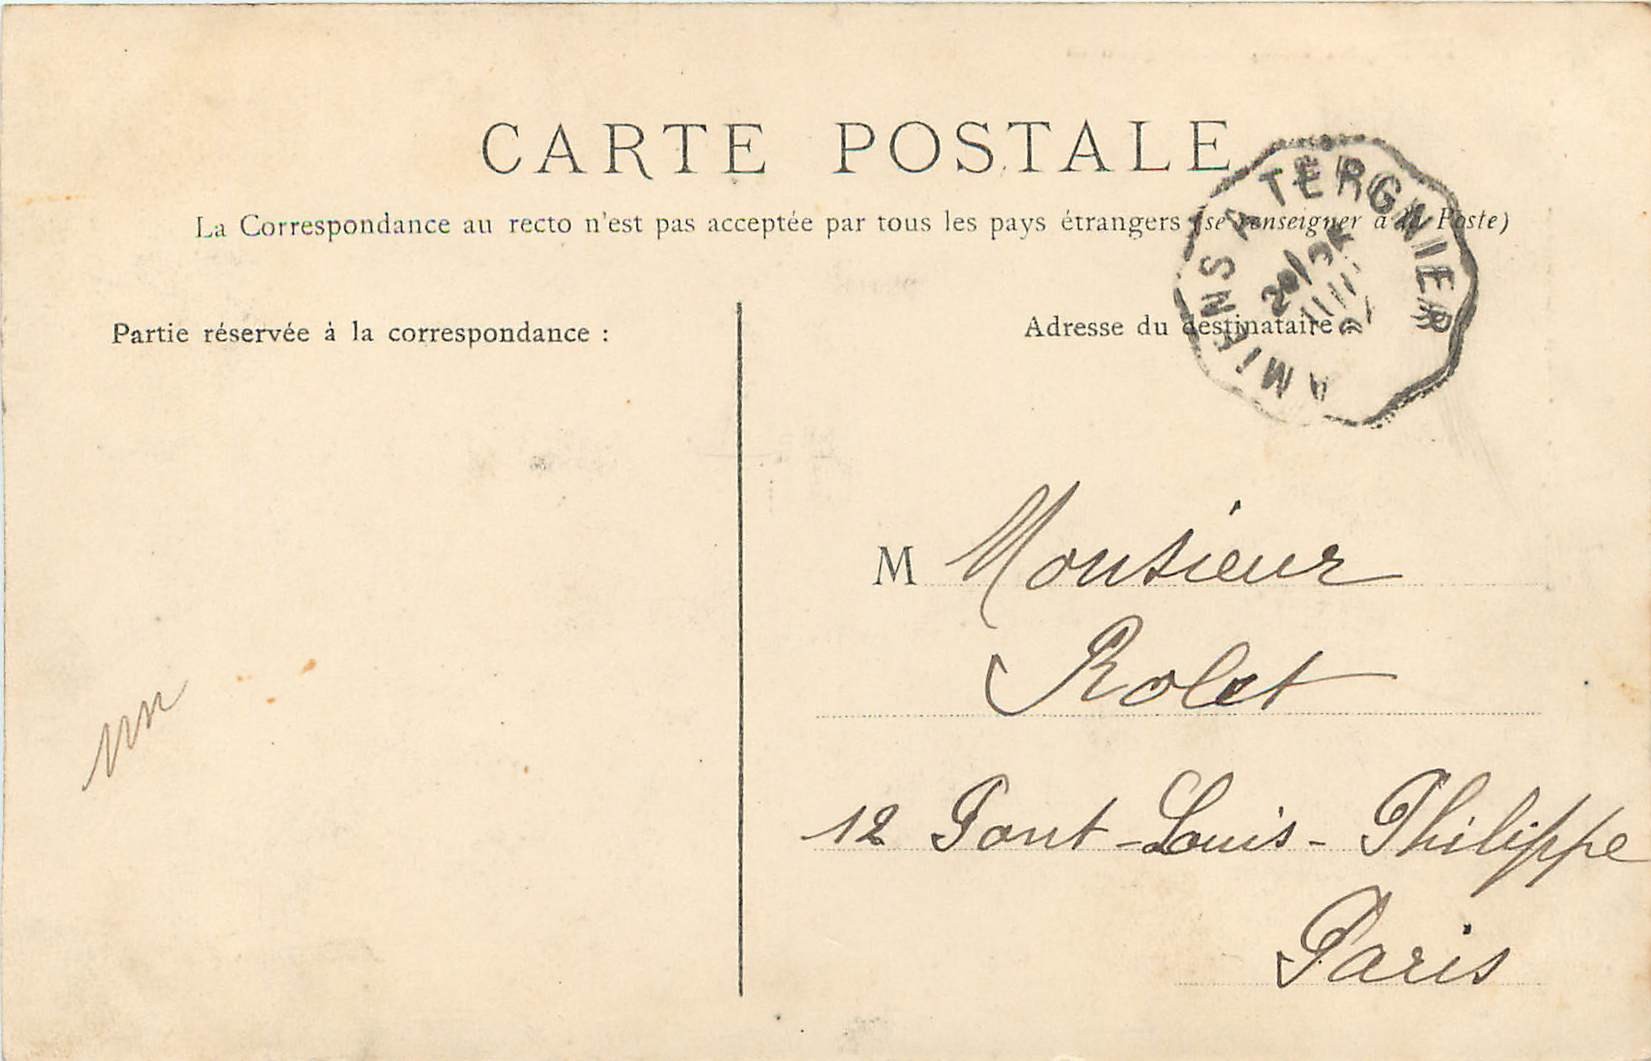 CARTE POSTALE
La Correspondance au recto n'est pas acceptée par tous les pays étrangers (se renseigner à la Poste)
AMIENS A TERGNIER
Partie réservée à la correspondance :
Adresse du destinataire
M Monsieur
Rolet
12 Pont-Louis-Philippe
Paris